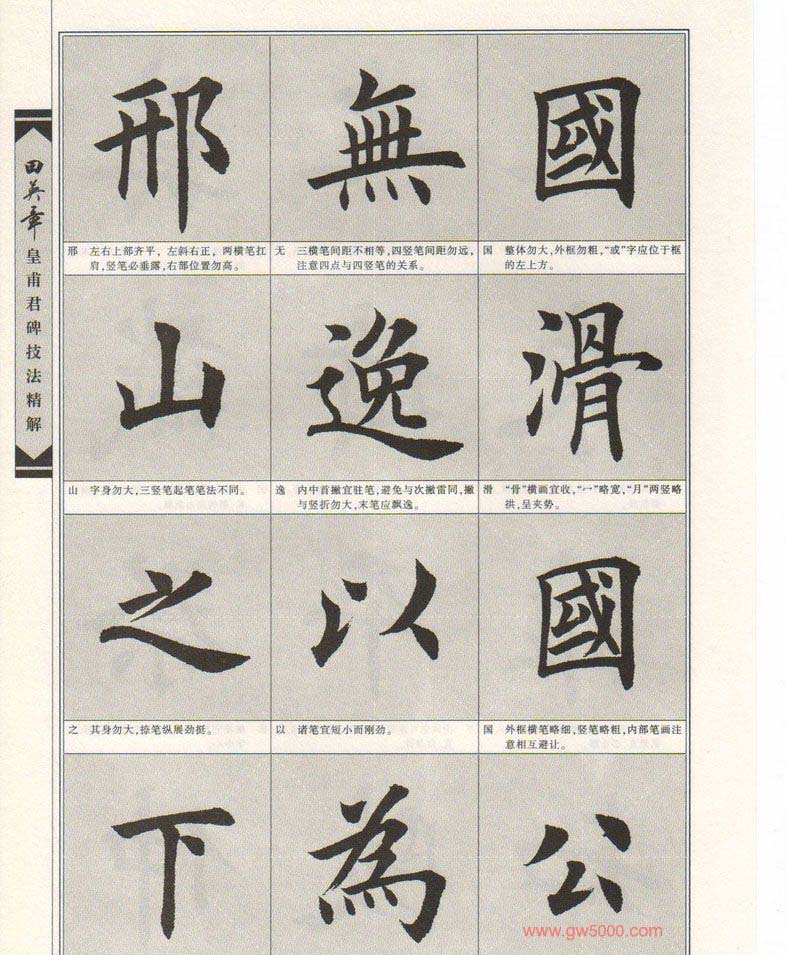 田英章
皇甫君碑技法精解
邢 無 國
邢 左右上部齐平,左斜右正,两横笔扛
肩,竖笔必垂露,右部位置勿高。
无 三横笔间距不相等,四竖笔间距勿远,
注意四点与四竖笔的关系。
国 整体勿大,外框勿粗,“或”字应位于框
的左上方。
山 逸 滑
山 字身勿大,三竖笔起笔笔法不同。
逸 内中首撇宜驻笔,避免与次撇雷同,撇
与竖折勿大,末笔应飘逸。
滑 “骨”横画宜收,“冖”略宽,“月”两竖略
拱,呈夹势。
之 以 國
之 其身勿大,捺笔纵展劲挺。
以 诸笔宜短小而刚劲。
国 外框横笔略细,竖笔略粗,内部笔画注
意相互避让。
下 為 公
www.gw5000.com